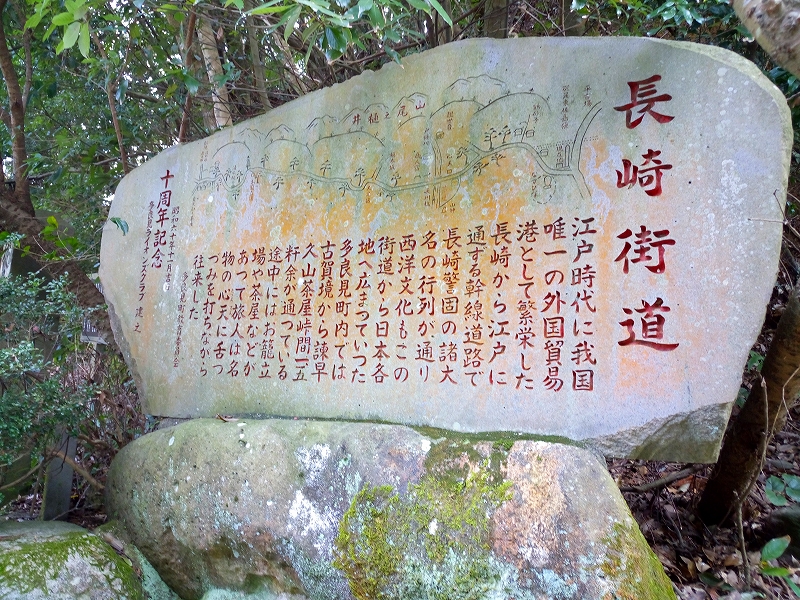 長崎街道
江戸時代に我国
唯一の外国貿易
港として繁栄した
長崎から江戸に
通ずる幹線道路で
長崎警固の諸大
名の行列が通り
西洋文化もこの
街道から日本各
地へ広まっていつた
多良見町内では
古賀境から諫早
久山茶屋峠間一五
粁余が通つている
途中にはお籠立
場や茶屋などが
あつて旅人は名
物の心天に舌つ
つみを打ちながら
往来した
昭和六十年十一月十七日
多良見町教育委員会
十周年記念
多良見ライオンズクラブ 建之
井樋之尾山